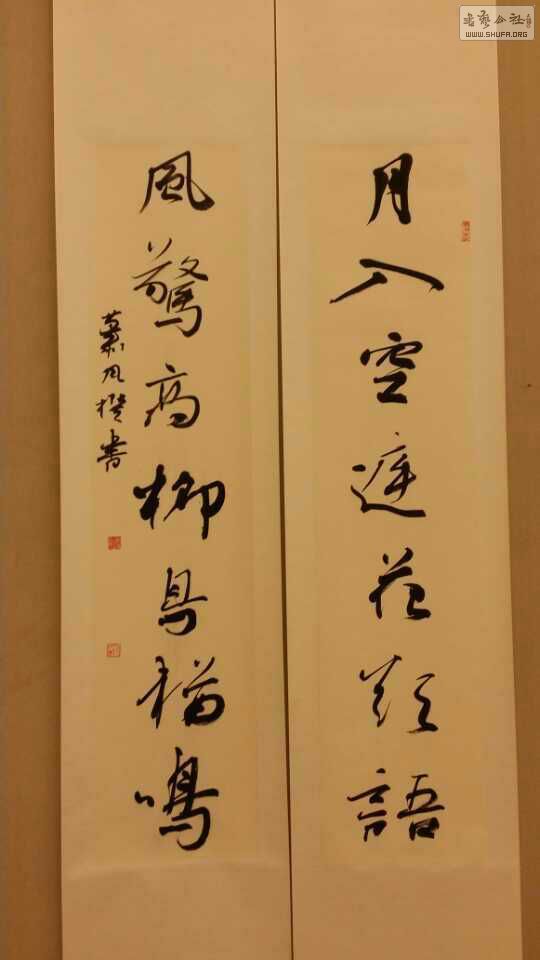 書藝公社
WWW.SHUFA.ORG
月入空庭花語
風驚高柳鳥猶鳴
蕭風書